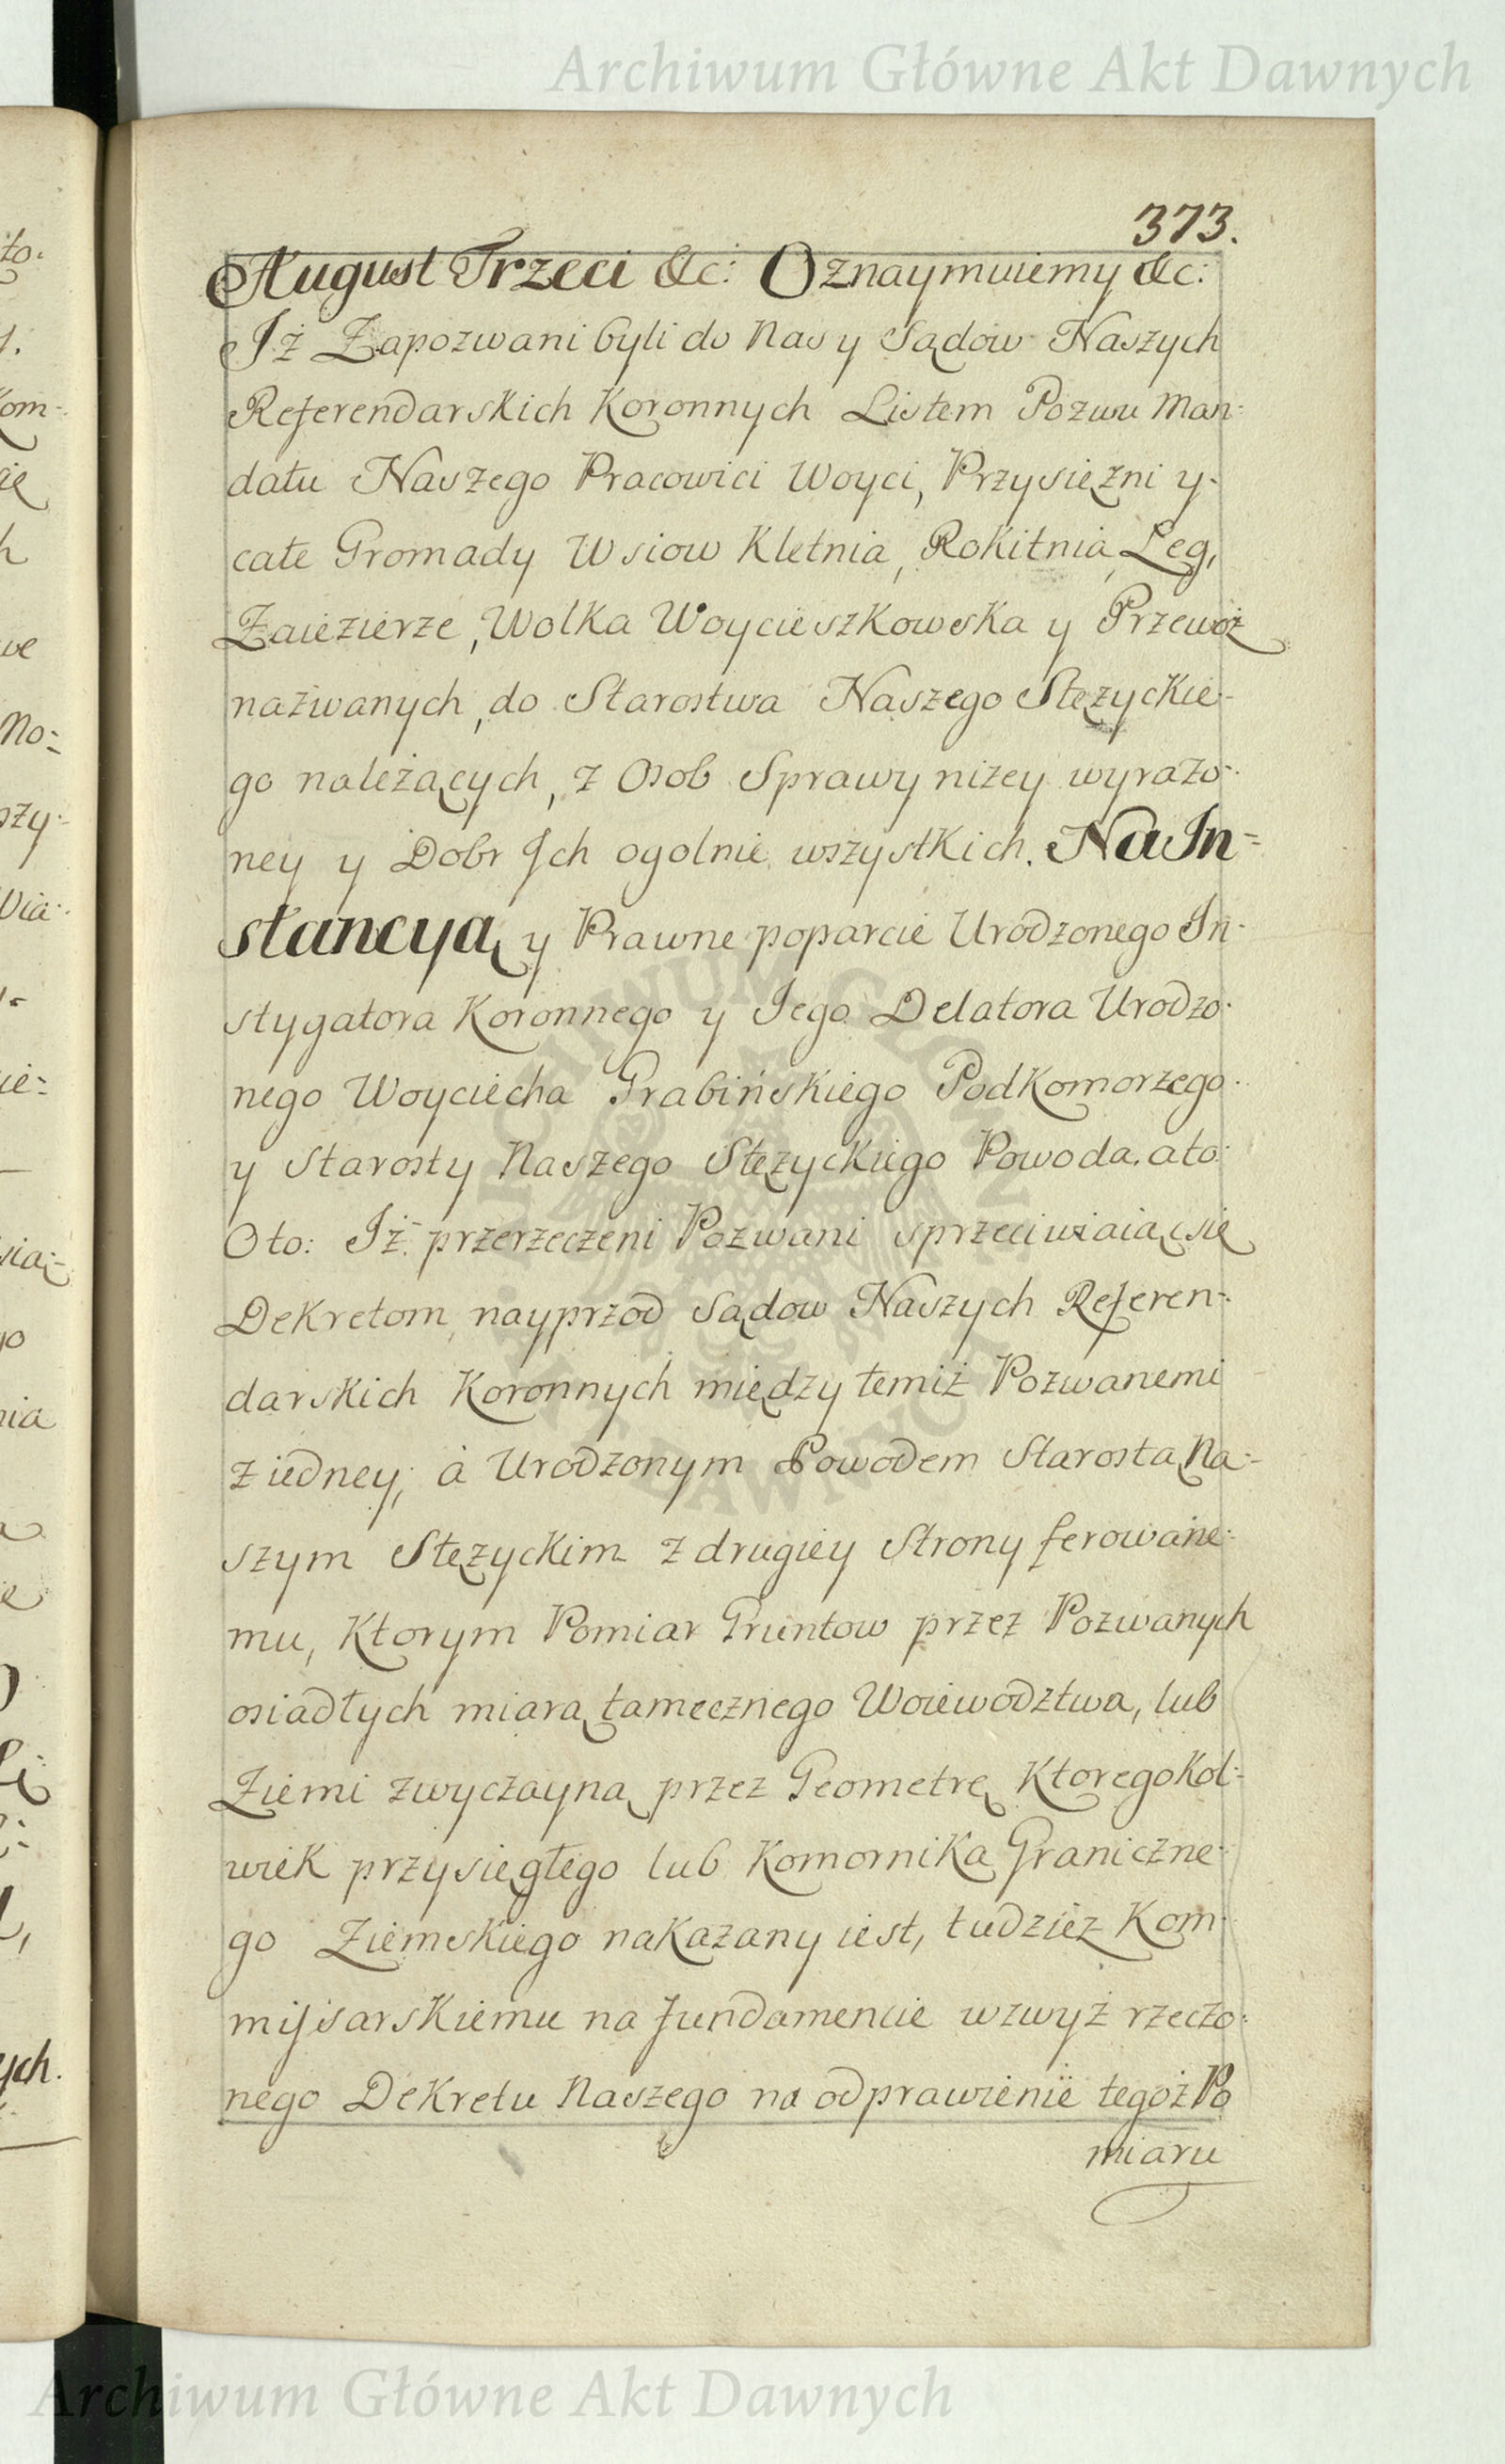 Archiwum Główne Akt Dawnych
373.
August Trzeci &c: Oznaymuiemy &c:
Iż Zapozwani byli do Nas y Sądow Naszych
Referendarskich Koronnych Listem Pozwu Man-
datu Naszego Pracowici Woyci, Przysiężni y
całe Gromady Wsiow Kletnia, Rokitnia, Łeg,
Zaiezierze, Wolka Woycieszkowska y Przewoz
nazwanych, do Starostwa Naszego Stężyckie-
go należących, z Osob Sprawy niżey wyrażo-
ney y Dobr Ich ogolnie wszystkich. Na In-
stancyą y Prawne poparcie Urodzonego In-
stygatora Koronnego y Jego Delatora Urodzo-
nego Woyciecha Grabińskiego Podkomorzego
y Starosty Naszego Stężyckiego Powoda. a to
Oto: Iż przerzeczeni Pozwani sprzeciwiaiąc się
Dekretom, nayprzod Sądow Naszych Referen-
darskich Koronnych między temiż Pozwanemi
z iedney; à Urodzonym Powodem Starostą Na-
szym Stężyckim z drugiey Strony ferowane-
mu, Ktorym Pomiar Gruntow przez Pozwanych
osiadłych miarą tamecznego Woiewodztwa, lub
Ziemi zwyczayną przez Geometrę Ktoregokol-
wiek przysięgłego lub Komornika Graniczne-
go Ziemskiego nakazany iest, tudzież Kom-
missarskiemu na fundamencie wzwyż rzeczo-
nego Dekretu Naszego na odprawienie tegoż Po
miaru
Archiwum Główne Akt Dawnych